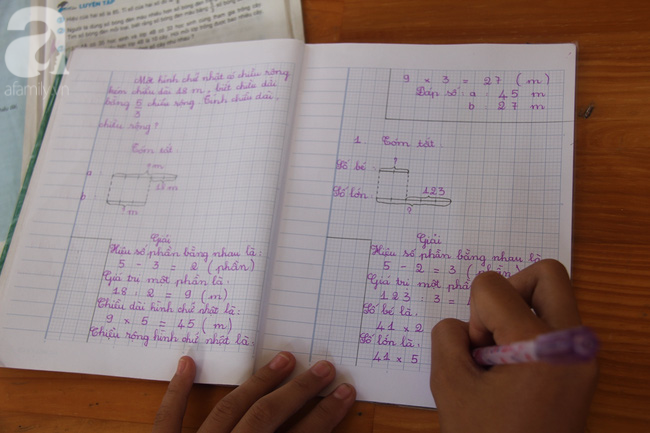 LUYỆN TẬP
a
afamily.vn
Một hình chữ nhật có chiều rộng
kém chiều dài 18 m, biết chiều dài
bằng 5/3 chiều rộng. Tính chiều dài,
chiều rộng?
Tóm tắt
? m
a
18 m
b
? m
Giải
Hiệu số phần bằng nhau là:
5 - 3 = 2 (phần)
Giá trị một phần là:
18 : 2 = 9 (m)
Chiều dài hình chữ nhật là:
9 x 5 = 45 (m)
Chiều rộng hình chữ nhật là:
9 x 3 = 27 (m)
Đáp số: a: 45 m
b: 27 m
1. Tóm tắt
?
Số bé:
123
Số lớn:
?
Giải
Hiệu số phần bằng nhau là:
5 - 2 = 3 (phần)
Giá trị một phần
123 : 3 =
Số bé là:
41 x 2
Số lớn là:
41 x 5